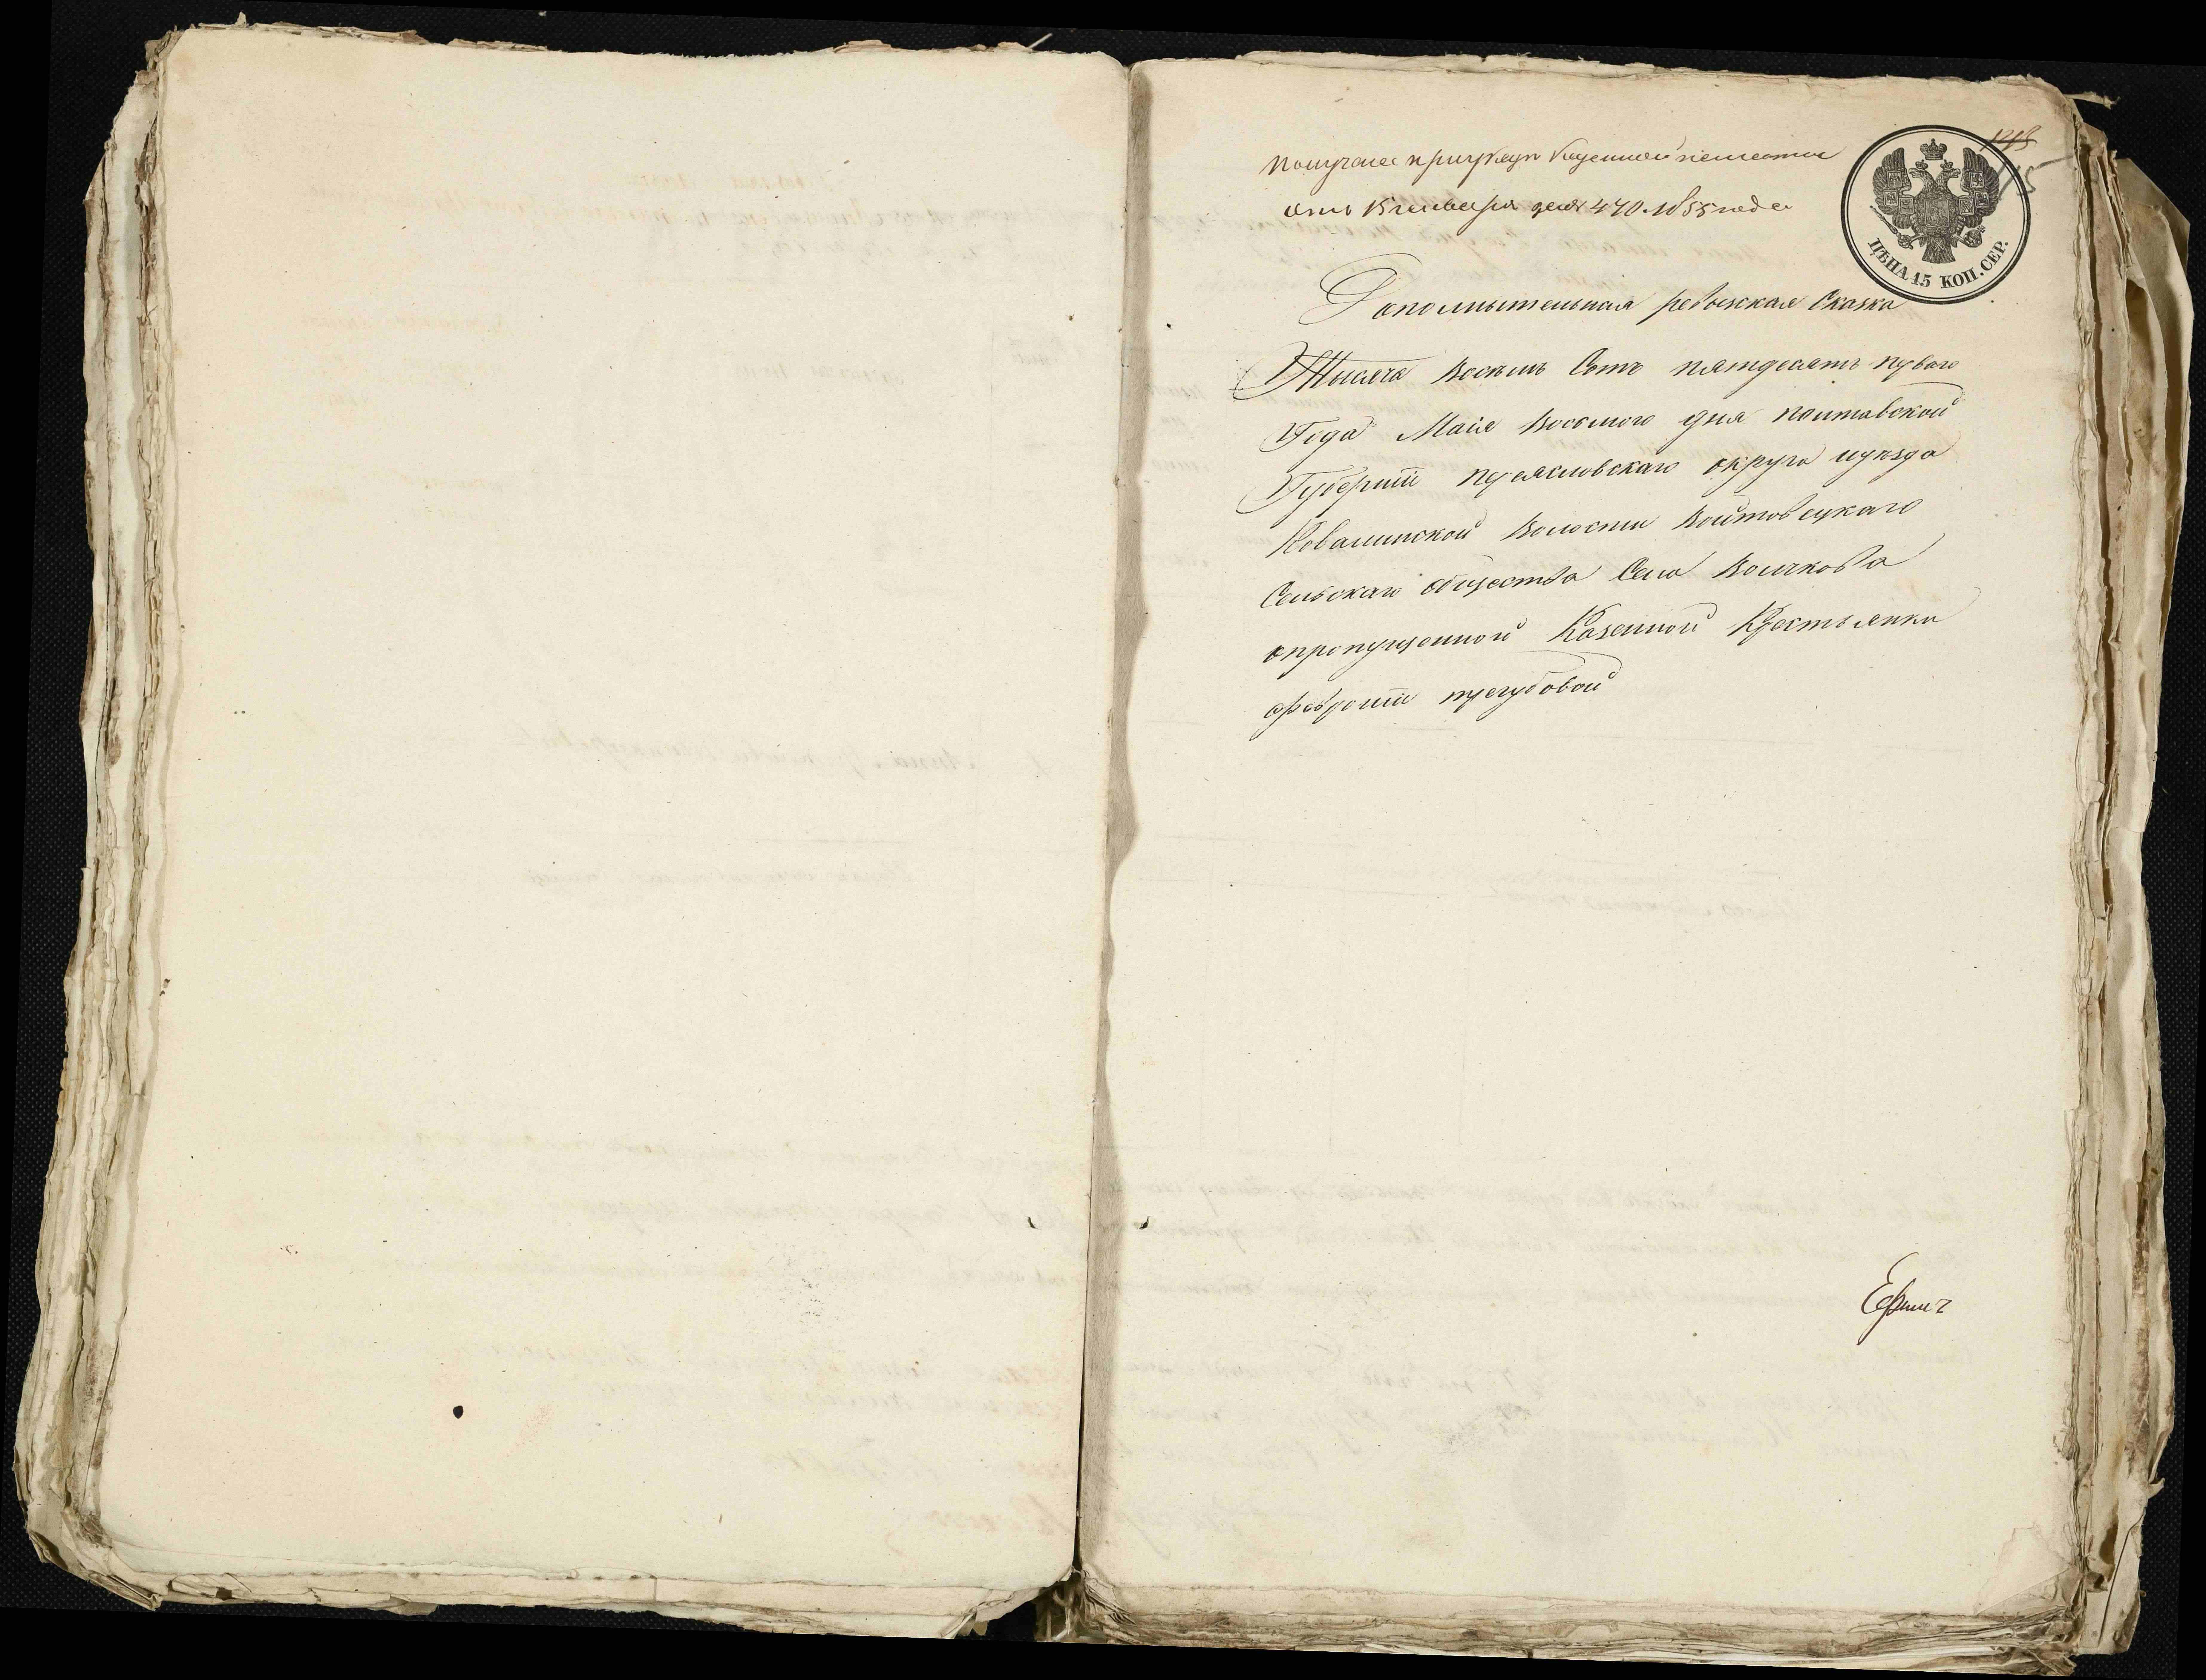 Получена при указе казенной палаты
отъ 15 генваря за № 470. 1855 года
ЦѢНА 15 КОП. СЕР.
Дополнительная ревизская Сказка
Тысяча восемь Сотъ пятдесятъ перваго
Года Маія восьмого дня полтавской
Губерніи переяславскаго округа иуезда
Ковалинской волости войтовецкаго
Сельскаго общества Села волчкова
опропущенной Казенной Крестьянки
февроніи трегубовой